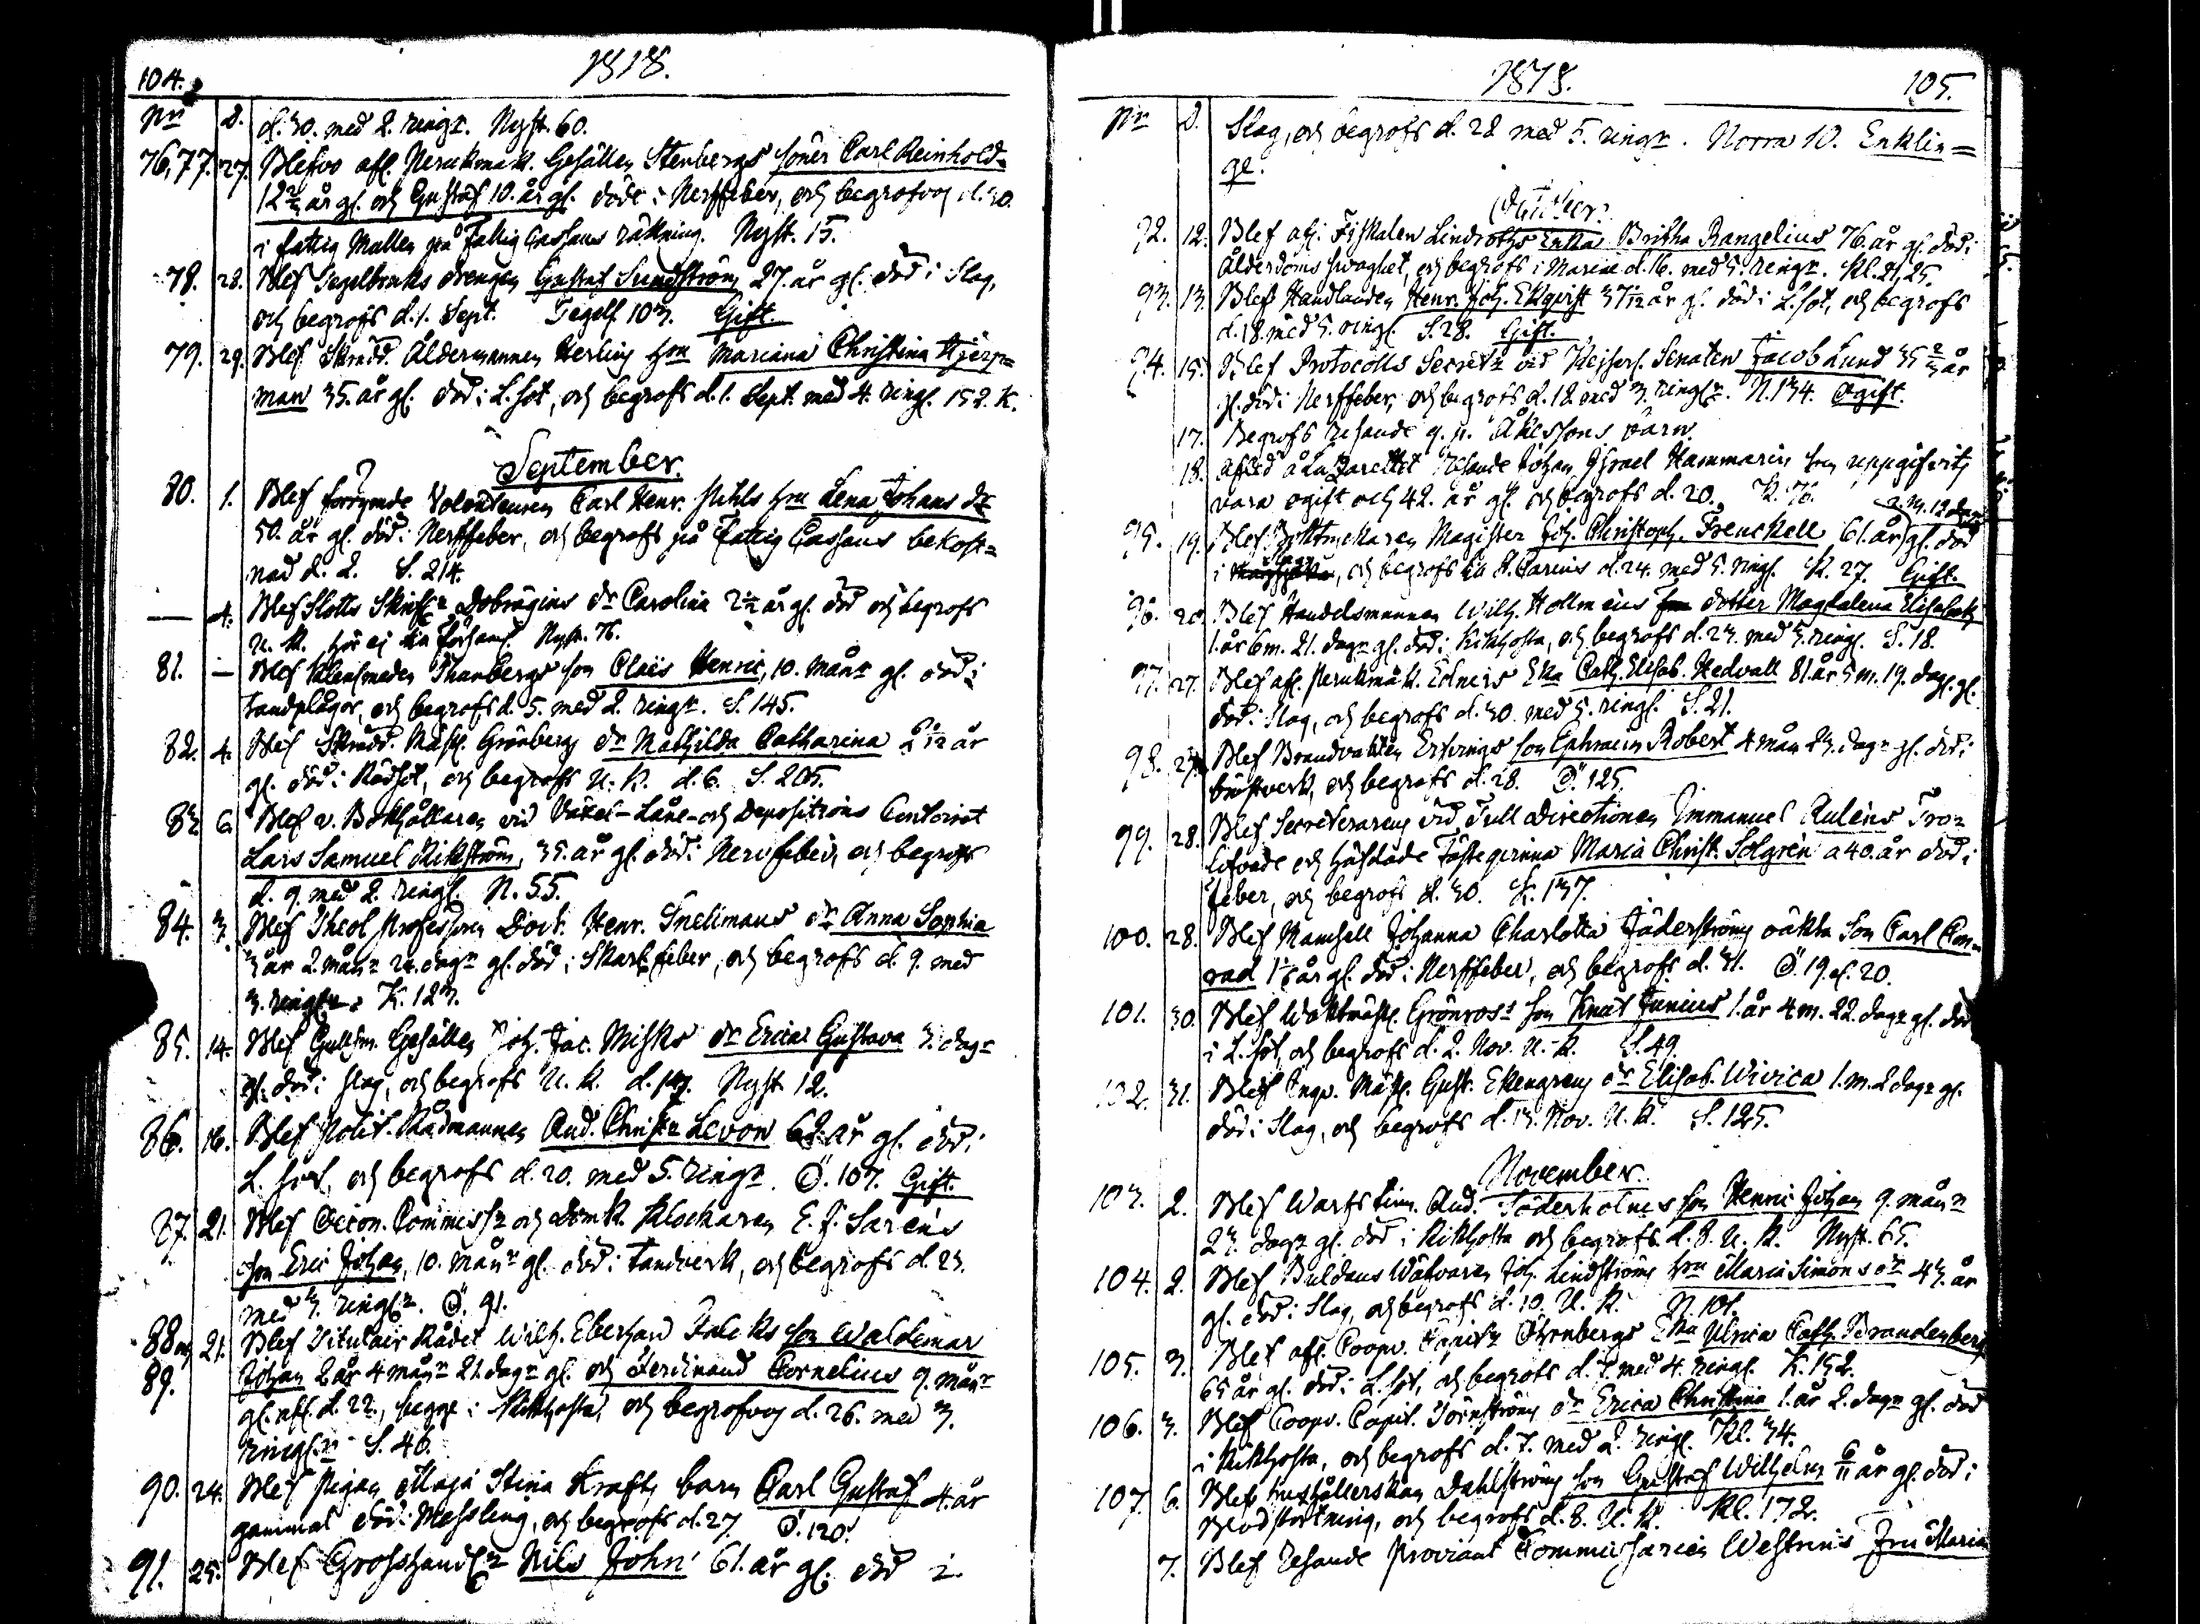 104.
1818.
Nr D. d. 30. med 2. ringr. Nyst. 60.
76, 77. 27. Blefvo afl. Perukmak. Gesällen Stenbergs söner Carl Reinhold
12 år gl. och Gustaf 10. år gl. döde i Nerffeber, och begrofvos d. 30.
i fattig Mullen på Fattig Cassans räkning. Nyst. 15.
78. 28. Blef Tegelbruks drengen Gustaf Sundström 27. år gl. död i Slag,
och begrofs d. 1. Sept. Tegels. 103. Gift.
79. 29. Blef Skrädd. Åldermannen Herlins hru Mariana Christina Hjerp=
man 35. år gl. död i L. sot, och begrofs d. 1. Sept. med 4. ringr. 152. K.
September.
80. 1. Blef förrymde Volonteuren Carl Henr. Pihls hru Lena Johans dr
50. år gl. död i Nerffeber, och begrofs på Fattig Cassans bekost=
nad d. 2. S. 214.
— 4. Blef Slotts Skrifr Dobrogins dr Carolina 2 år gl. död och begrofs
U. K. hör ej till förhand. Nyst. 76.
81. — Blef Klensmeden Thunbergs son Claës Henric, 10. månr gl. död i
tandplågor, och begrofs d. 5. med 2. ringr. S. 145.
82. 4. Blef Skrädd. Mäst. Grönbergs dr Mathilda Catharina 2 år
gl. död i Rödsot, och begrofs U. K. d. 6. S. 205.
83. 6. Blef v. Bokhållaren vid Växel-Låne-och Depositions Contoiret
Lars Samuel Wikström, 35. år gl. död i Nerffeber, och begrofs
d. 9. med 2. ringr. N. 55.
84. 3. Blef Theol. Professoren Doct. Henr. Snellmans dr Anna Sophia
3 år 2. månr 24. dagr gl. död i Skarl. feber, och begrofs d. 9. med
3. ringr. K. 123.
85. 14. Blef Gullsm. Gesällen Joh. Jac. Misks dr Erica Gustava 3. dagr
gl. död i slag, och begrofs U. K. d. 17. Nyst. 12.
86. 16. Blef Polit. Rådmannen And. Christr Levon 62. år gl. död i
L. sot, och begrofs d. 20. med 5. ringr. Ö. 107. Gift.
87. 21. Blef Oecon. Commissr och domk. Klockaren E. J. Sarens
son Eric Johan, 10. månr gl. död i tandverk, och begrofs d. 23.
med 3. ringr. Ö. 91.
88 och 21. Blef Titulair Rådet Wilh. Eberhard Falcks son Waldemar
89. Johan 2 år 4 månr 21. dagr gl. och Ferdinand Cornelius 9. månr
gl. afl. d. 22., begge i Kikhosta, och begrofvos d. 26. med 3.
ringr. S. 46.
90. 24. Blef Pigan Maja Stina Krafts barn Carl Gustaf 4. år
gammal död i Messling, och begrofs d. 27. Ö. 120.
91. 25. Blef Grosshandlr Nils John 61. år gl. död i
1818.
105.
Nr D. Slag, och begrofs d. 28 med 5. ringr. Norra 10. Enklin=
ge.
October.
92. 12. Blef afl. Fiskalen Lindroths Enka Britha Rangelius 76. år gl. död i
Ålderdoms svaghet, och begrofs i Marine d. 16. med 5. ringr. Kl. 21, 25.
93. 13. Blef Handlanden Henr. Joh. Ekqvist 37 år gl. död i L. sot, och begrofs
d. 18. med 5. ringr. S. 28. Gift.
94. 15. Blef Protocolls Secretr vid Kejserl. Senaten Jacob Lund 35 år
gl. död i Nerffeber, och begrofs d. 18. med 3. ringr. N. 134. Ogift.
17. Begrofs resande Åkessons barn.
18. Afled å Lazarettet Resande Johan Israel Hammarin som uppgifvits
vara ogift och 42. år gl. och begrofs d. 20. K. 76.
2. m. 12 dagr
95. 19. Blef Boktryckaren Magister Joh. Christoph. Frenckell 61. år gl. död
i, och begrofs till S. Carins d. 24. med 5. ringr. K. 27. Gift.
96. 20. Blef Handelsmannen Wilh. Hollmens dotter Magdalena Elisabeth
1. år 6 m. 21. dagr gl. död i Kikhosta, och begrofs d. 23. med 3. ringr. S. 18.
97. 27. Blef afl. Perukmak. Edners Eka Cath. Elisab. Hedvall 81. år 5 m. 19. dagr gl.
död i Slag, och begrofs d. 30. med 5. ringr. S. 21.
98. 27. Blef Brandvakten Ervings son Ephraim Robert 4 mån 23. dagr gl. död i
bröstverk, och begrofs d. 28. Ö. 125.
99. 28. Blef Secreteraren vid Tull Directionen Immanuel Aulens Tro=
lofvade och häfdade Fästeqvinna Maria Christ. Solgren a 40. år död i
feber, och begrofs d. 30. K. 137.
100. 28. Blef Mamsell Johanna Charlotta Söderströms oäkta son Carl Con=
rad 1 år gl. död i Nerffeber, och begrofs d. 31. Ö. 19. el. 20.
101. 30. Blef Waktmäst. Grönroos son Knut Junius 1. år 4 m. 22. dagr gl. död
i L. sot, och begrofs d. 2. Nov. U. K. S. 49.
102. 31. Blef Inqv. Mäst. Gust. Ekengrens dr Elisab. Wivica 1. m. 2 dagr gl.
död i Slag, och begrofs d. 13. Nov. U. K. S. 125.
November.
103. 2. Blef Warfs timr. And. Söderholms son Henric Johan 9. månr
23. dagr gl. död i Kikhosta och begrofs d. 8. U. K. Nyst. 65.
104. 2. Blef Buldans Wäfvaren Joh. Lindströms hru Maria Simons dr 43. år
gl. död i Slag, och begrofs d. 10. U. K. N. 101.
105. 3. Blef afl. Coopv. Capitn Öhrnbergs Eka Ulrica Cath. Brandenberg
65 år gl. död i L. sot, och begrofs d. 7. med 4. ringr. K. 152.
106. 3. Blef Coopv. Capit. Törnströms dr Erica Christina 1. år 2. dagr gl. död
i Kikhosta, och begrofs d. 7. med 2. ringr. Kl. 34.
107. 6. Blef hushållerskan Dahlströms son Gustaf Wilhelm 6/11 år gl. död i
Blodstörtning, och begrofs d. 8. U. K. Kl. 172.
7. Blef Resande Proviant Commissarien Westrins Fru Maria